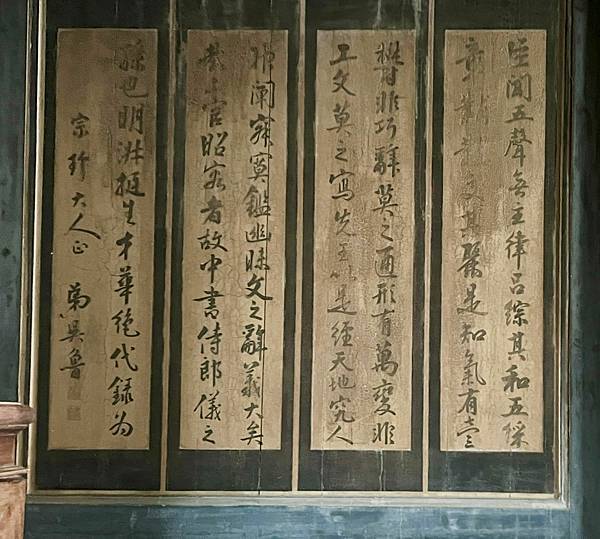 臣聞五聲無主律呂綜其和五綵
章黼黻交其麗是知氣有壹
鬱非巧辭莫之通形有萬變非
工文莫之寫先王以是經天地究人
神闡寂寞鑑幽昧文之辭義大矣
哉上官昭容者故中書侍郎儀之
孫也明淑挺生才華絕代錄為
宗珍大人正 弟吳魯